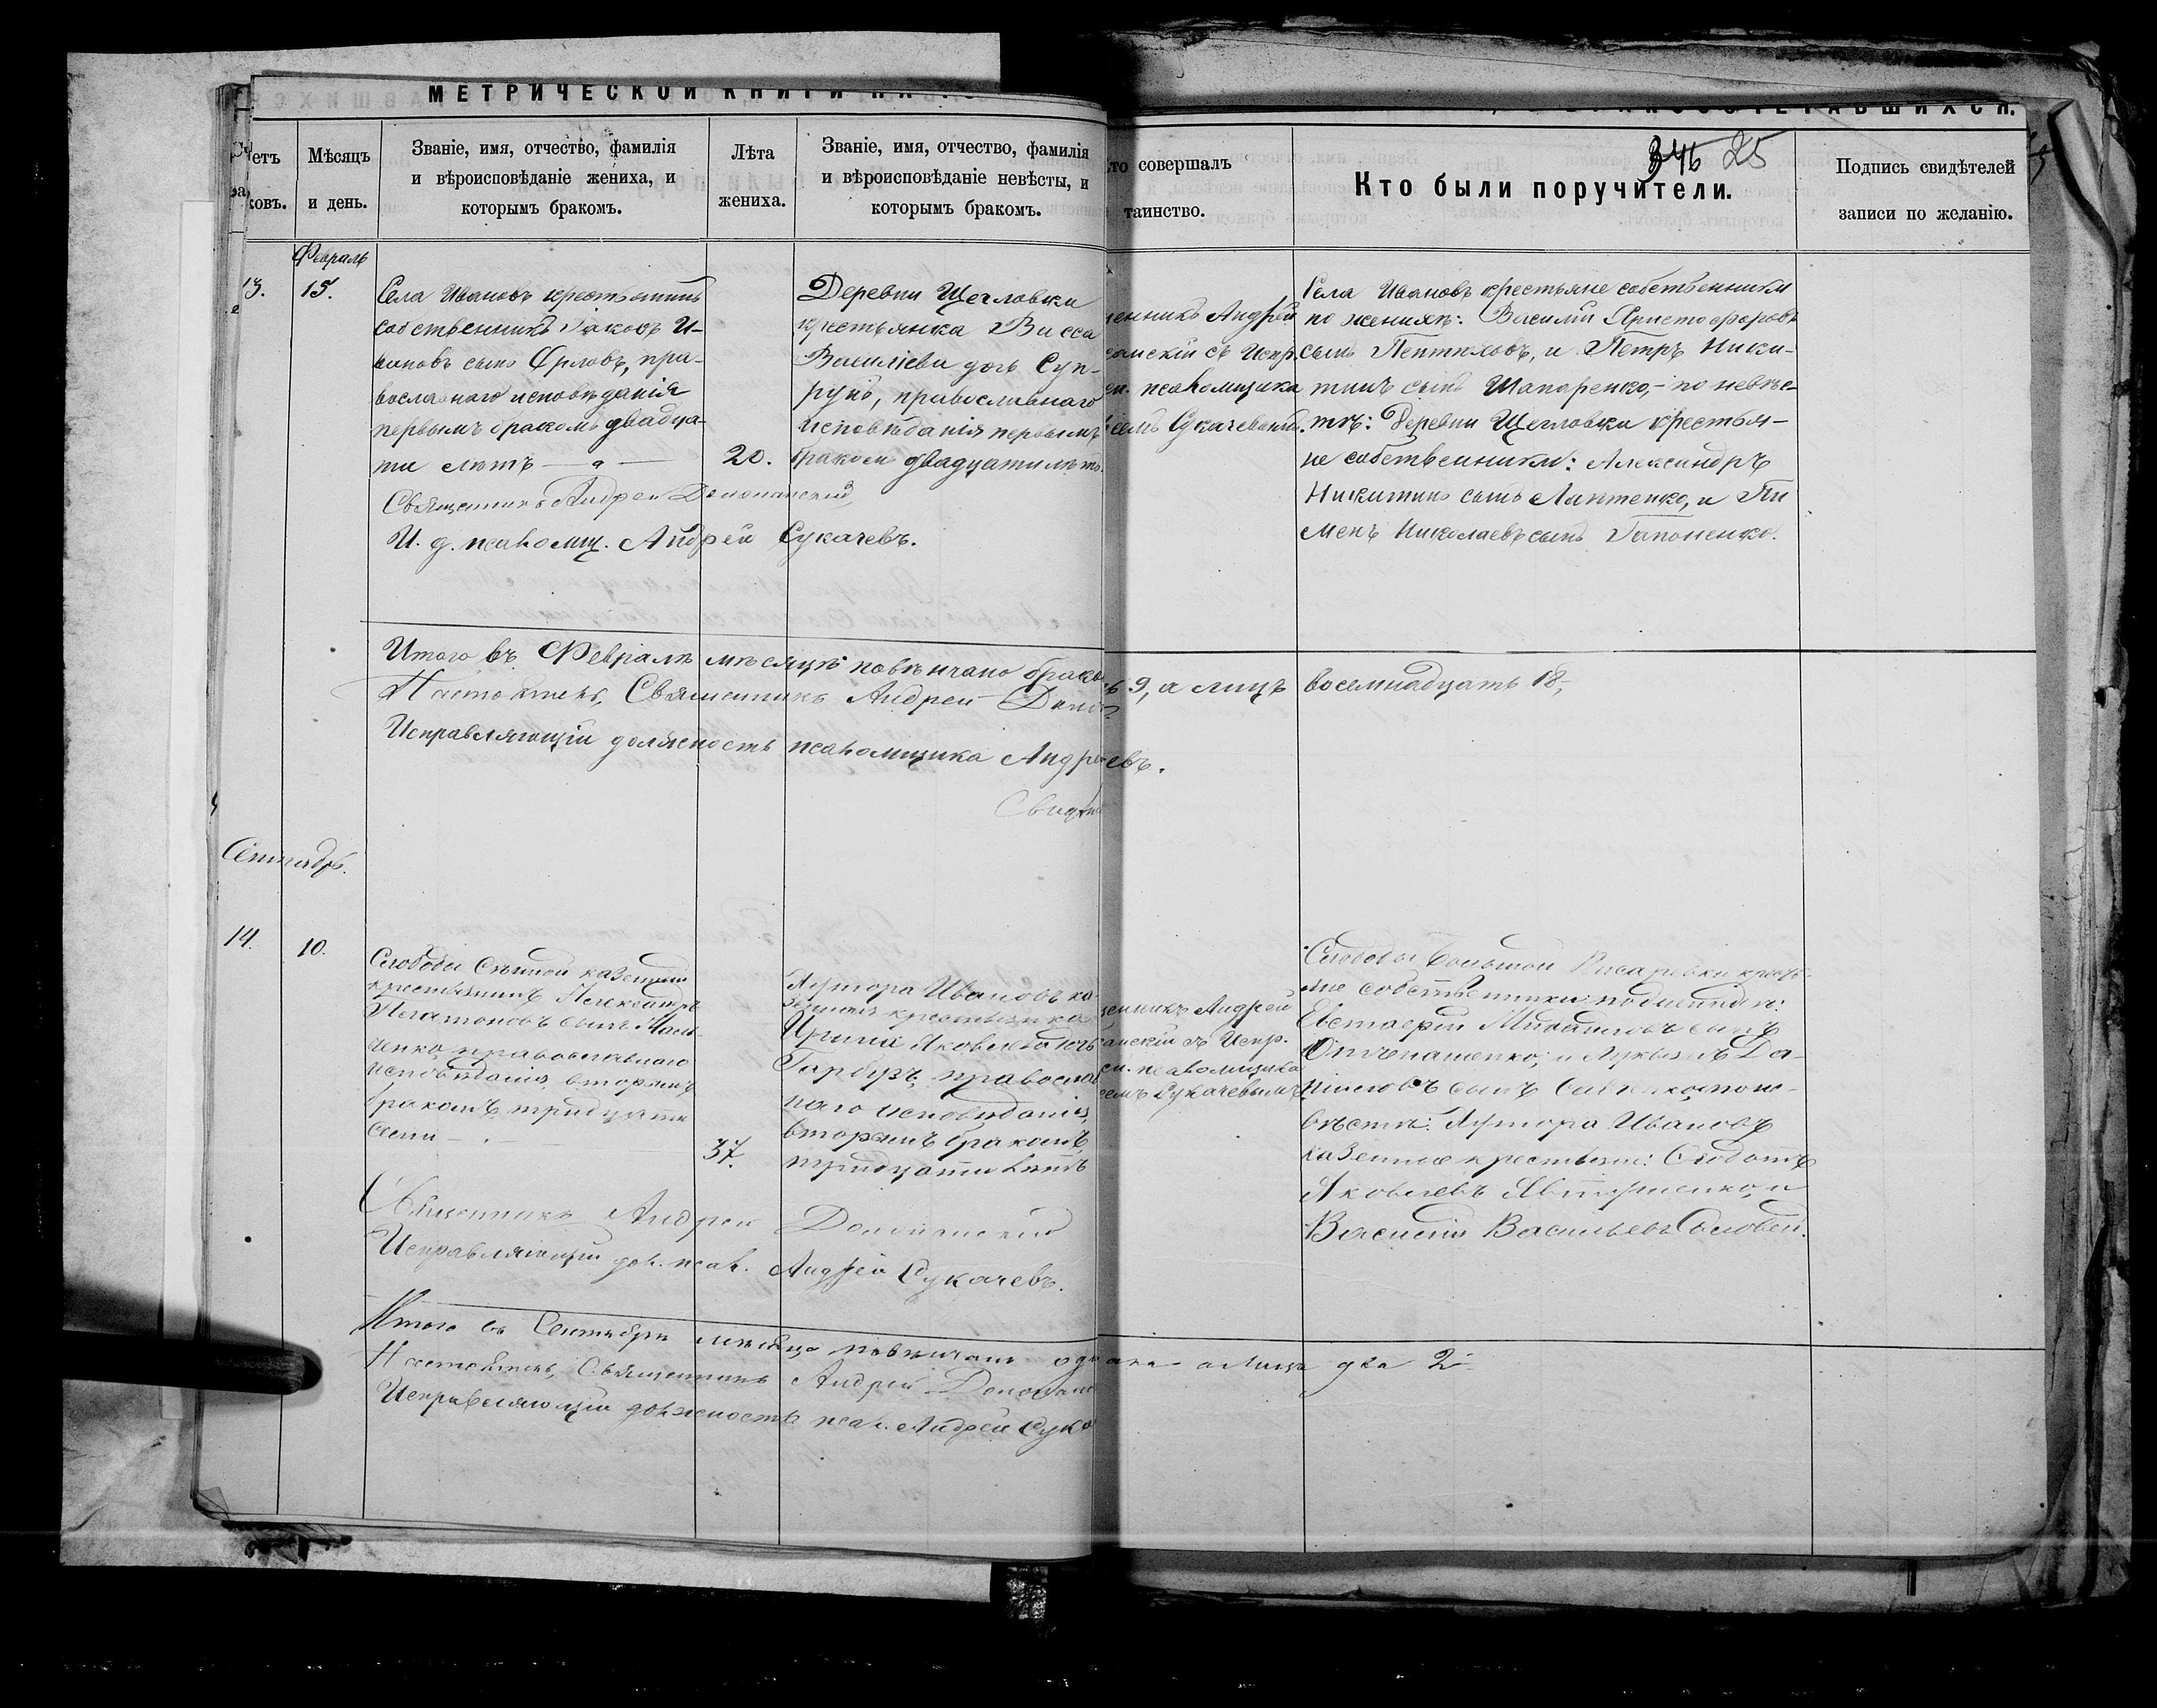 МЕТРИЧЕСКОЙ КНИГИ НА
Счетъ
браковъ.
Мѣсяцъ
и день.
Званіе, имя, отчество, фамилія
и вѣроисповѣданіе жениха, и
которымъ бракомъ.
Лѣта
жениха.
Званіе, имя, отчество, фамилія
и вѣроисповѣданіе невѣсты, и
которымъ бракомъ.
Кто совершалъ
таинство.
346 25
Кто были поручители.
Подпись свидѣтелей
записи по желанію.
Февраль
13.
15.
Села Ивановъ крестьянинъ
собственникъ Іаковъ И-
вановъ сынъ Орловъ, пра-
вославнаго исповѣданія
первымъ бракомъ двадца-
ти лѣтъ
20.
Деревни Щегловки
крестьянка Васса
Василіева дочь Суп-
рунъ, православнаго
исповѣданія первымъ
бракомъ двадцати лѣтъ.
Священникъ Андрей
И. д. псаломщ. Андрей Сукачевъ.
Андрей
съ Испр.
псаломщика
Сукачевымъ.
Села Ивановъ крестьяне собственники
по женихѣ: Василій Христофоровъ
сынъ и Петръ Ники-
тинъ сынъ Шапаренко, по невѣс-
тѣ: Деревни Щегловки крестья-
не собственники: Александръ
Никитинъ сынъ Лаптенко, и Пи
менъ Николаевъ сынъ Гапоненко.
Итого въ Февралѣ мѣсяцѣ повѣнчано браковъ 9, а лицъ восемнадцать 18,
Настоятель, Священникъ Андрей
Исправляющій должность псаломщика Андрей
евъ.
Сентябрь.
14.
10.
Слободы Сѣнной казенный
крестьянинъ Александръ
Платоновъ сынъ
православнаго
исповѣданія вторымъ
бракомъ тридцати
семи
37.
Хутора Ивановъ ка-
зенная крестьянка
Ирина Яковлева дочь
Гарбузъ, православ
наго исповѣданія,
вторымъ бракомъ,
тридцати лѣтъ
Андрей
съ Испр.
псаломщика
Сукачевымъ
Слободы Большой Писаревки кресть-
яне собственники по женихѣ:
Евстафій Михайловъ сынъ
и Лукьянъ Да-
ниловъ сынъ по не-
вѣстѣ: Хутора Ивановъ
казенные крестьяне:
Яковлевъ Явтушенко, и
Василій Васильевъ Соловей.
Священникъ Андрей
Исправляющій дол. псал. Андрей Сукачевъ.
Итого въ Сентябрѣ мѣсяцѣ повѣнчанъ а лица два 2
Настоятель, Священникъ Андрей
Исправляющій должность псал. Андрей Сука